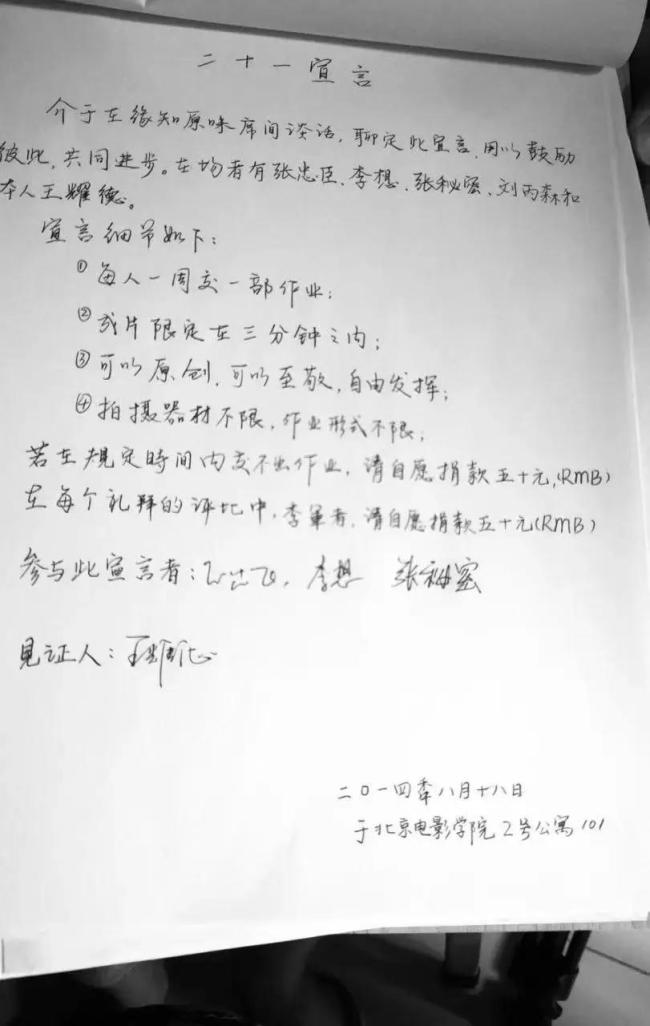 二十一宣言
介于在缘知原味席间谈话，聊定此宣言，用以鼓励
彼此，共同进步。在场者有张忠臣、李想、张秘密、刘丙森和
本人王耀德。
宣言细节如下：
①每人一周交一部作业；
②成片限定在三分钟之内；
③可以原创，可以至敬，自由发挥；
④拍摄器材不限，作业形式不限；
若在规定时间内交不出作业，请自愿捐款五十元，(RMB)
在每个礼拜的评比中，季军者，请自愿捐款五十元(RMB)
参与此宣言者：李想 张秘密
见证人：王耀德
二〇一四年八月十八日
于北京电影学院2号公寓101